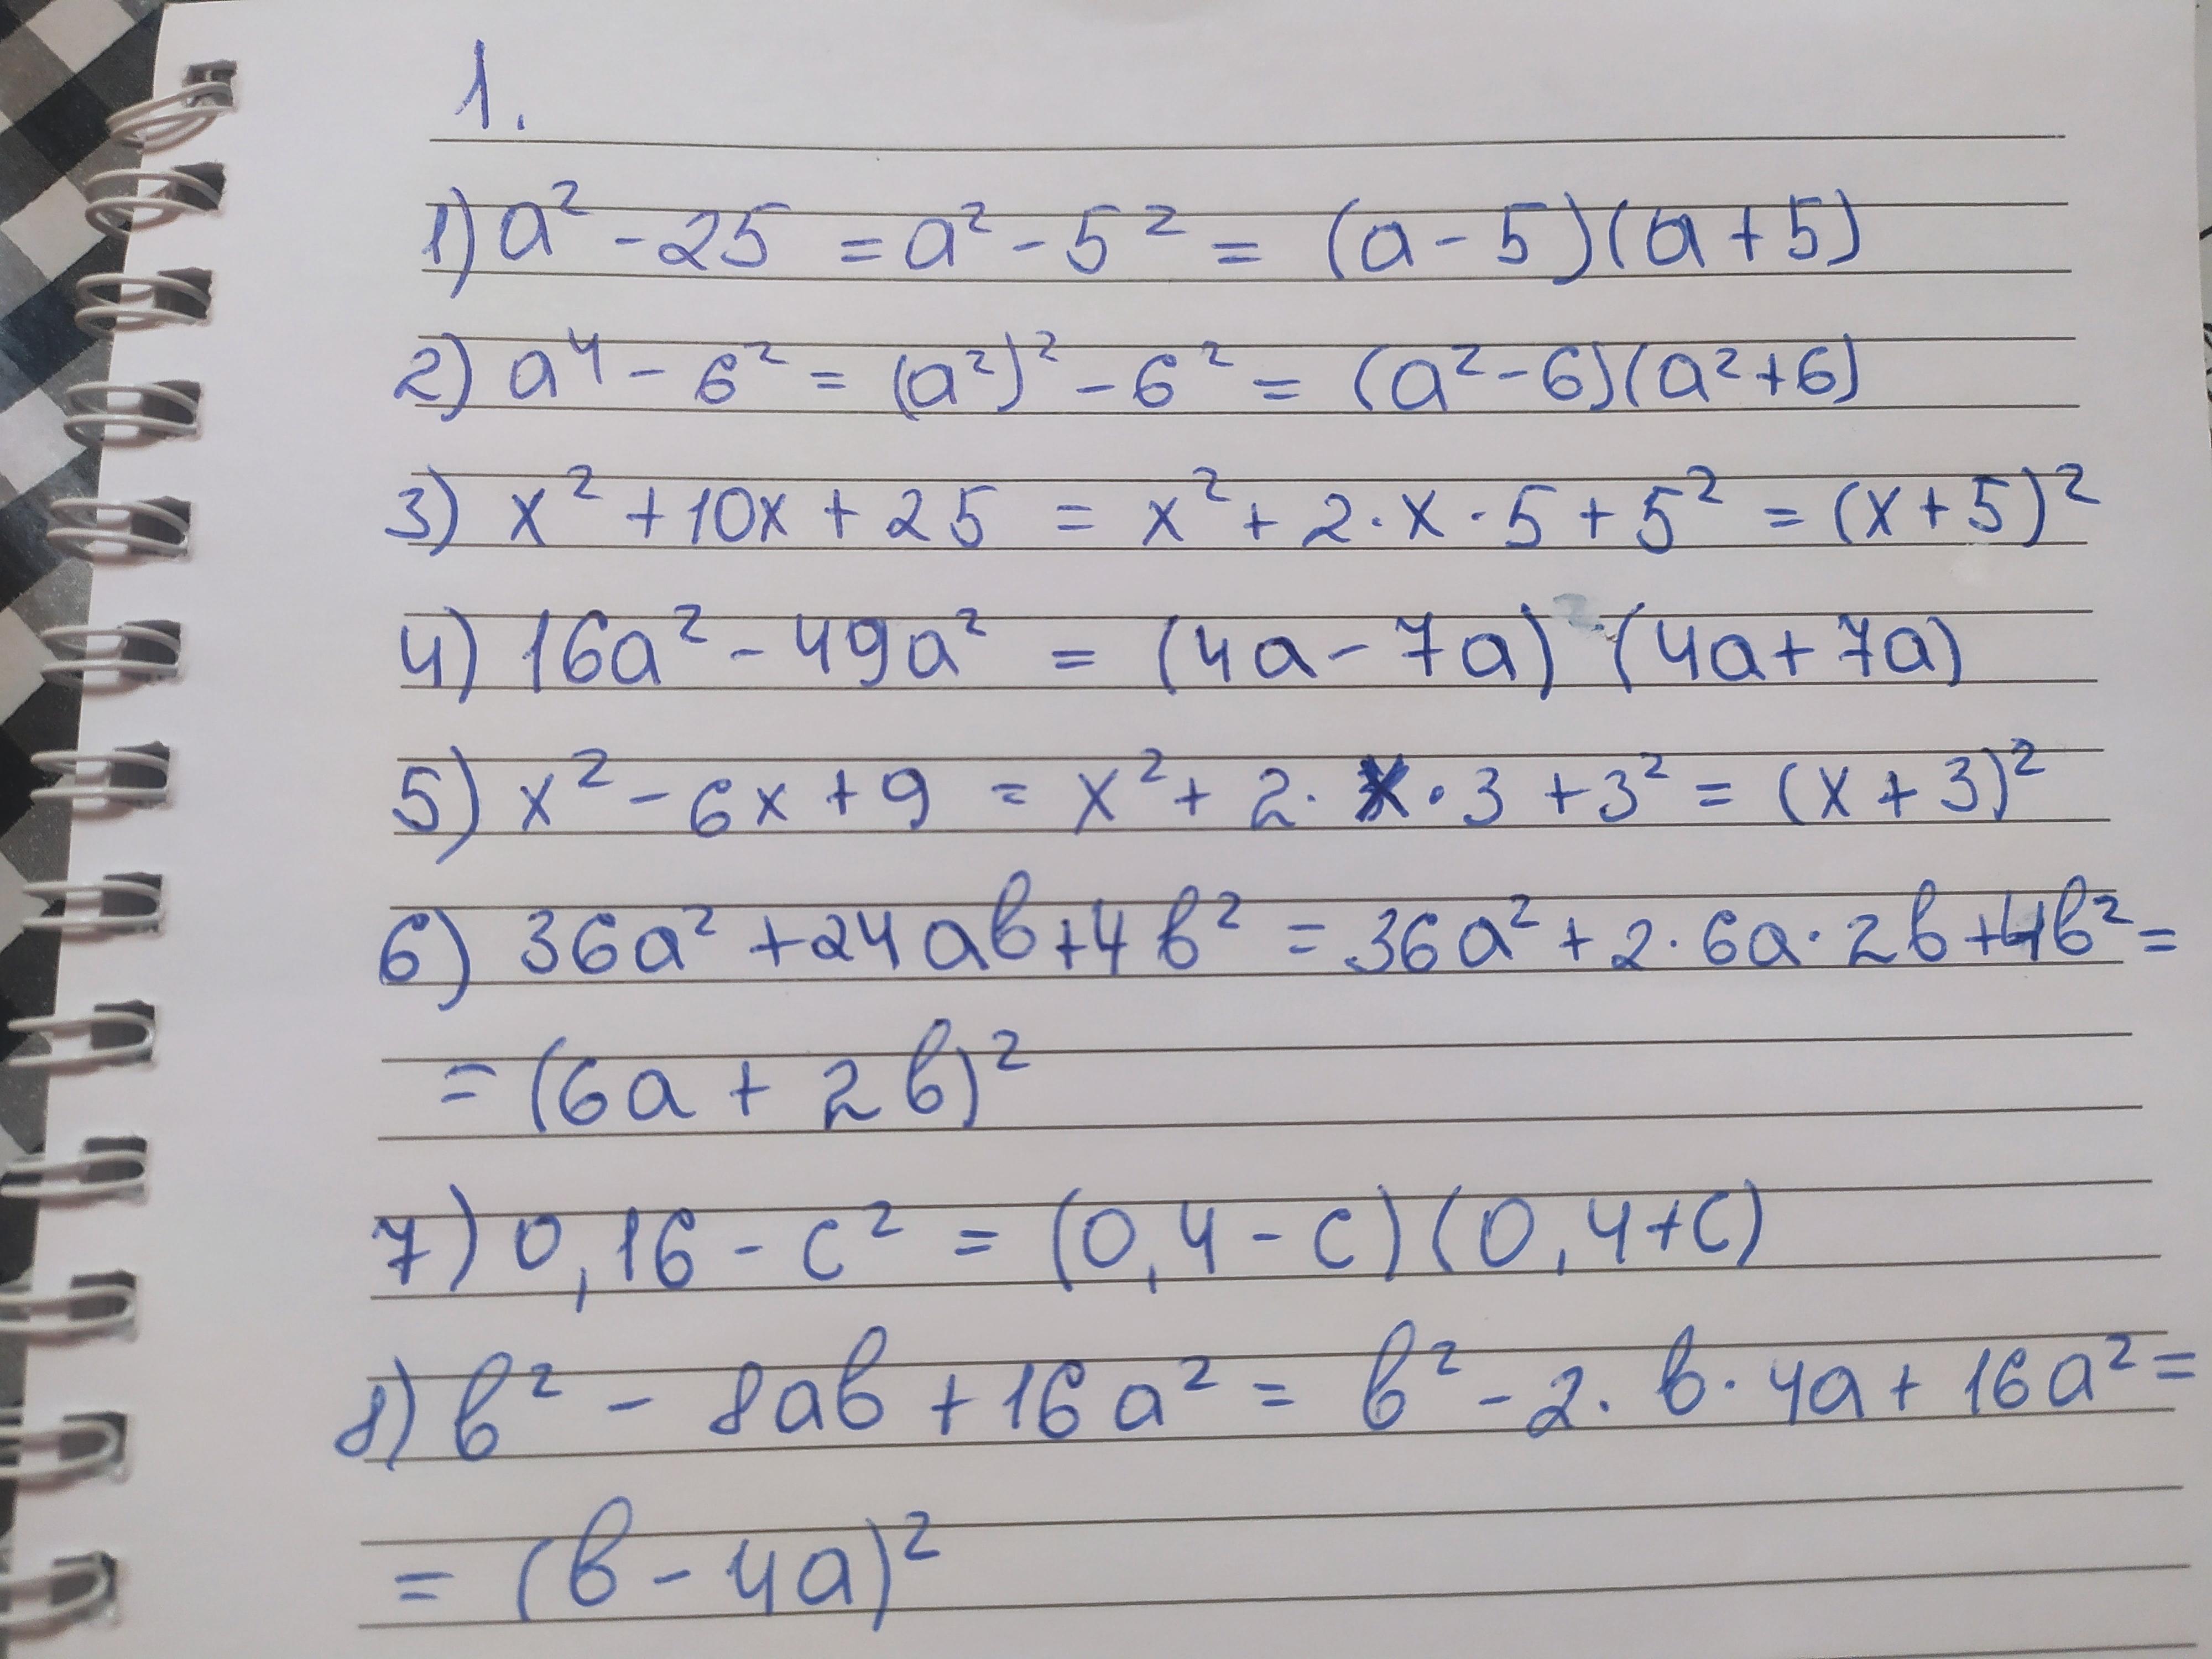 1.
1) a² - 25 = a² - 5² = (a - 5)(a + 5)
2) a⁴ - 6² = (a²)² - 6² = (a² - 6)(a² + 6)
3) x² + 10x + 25 = x² + 2·x·5 + 5² = (x + 5)²
4) 16a² - 49a² = (4a - 7a) (4a + 7a)
5) x² - 6x + 9 = x² + 2·x·3 + 3² = (x + 3)²
6) 36a² + 24ab + 4b² = 36a² + 2·6a·2b + 4b² =
= (6a + 2b)²
7) 0,16 - c² = (0,4 - c)(0,4 + c)
8) b² - 8ab + 16a² = b² - 2·b·4a + 16a² =
= (b - 4a)²